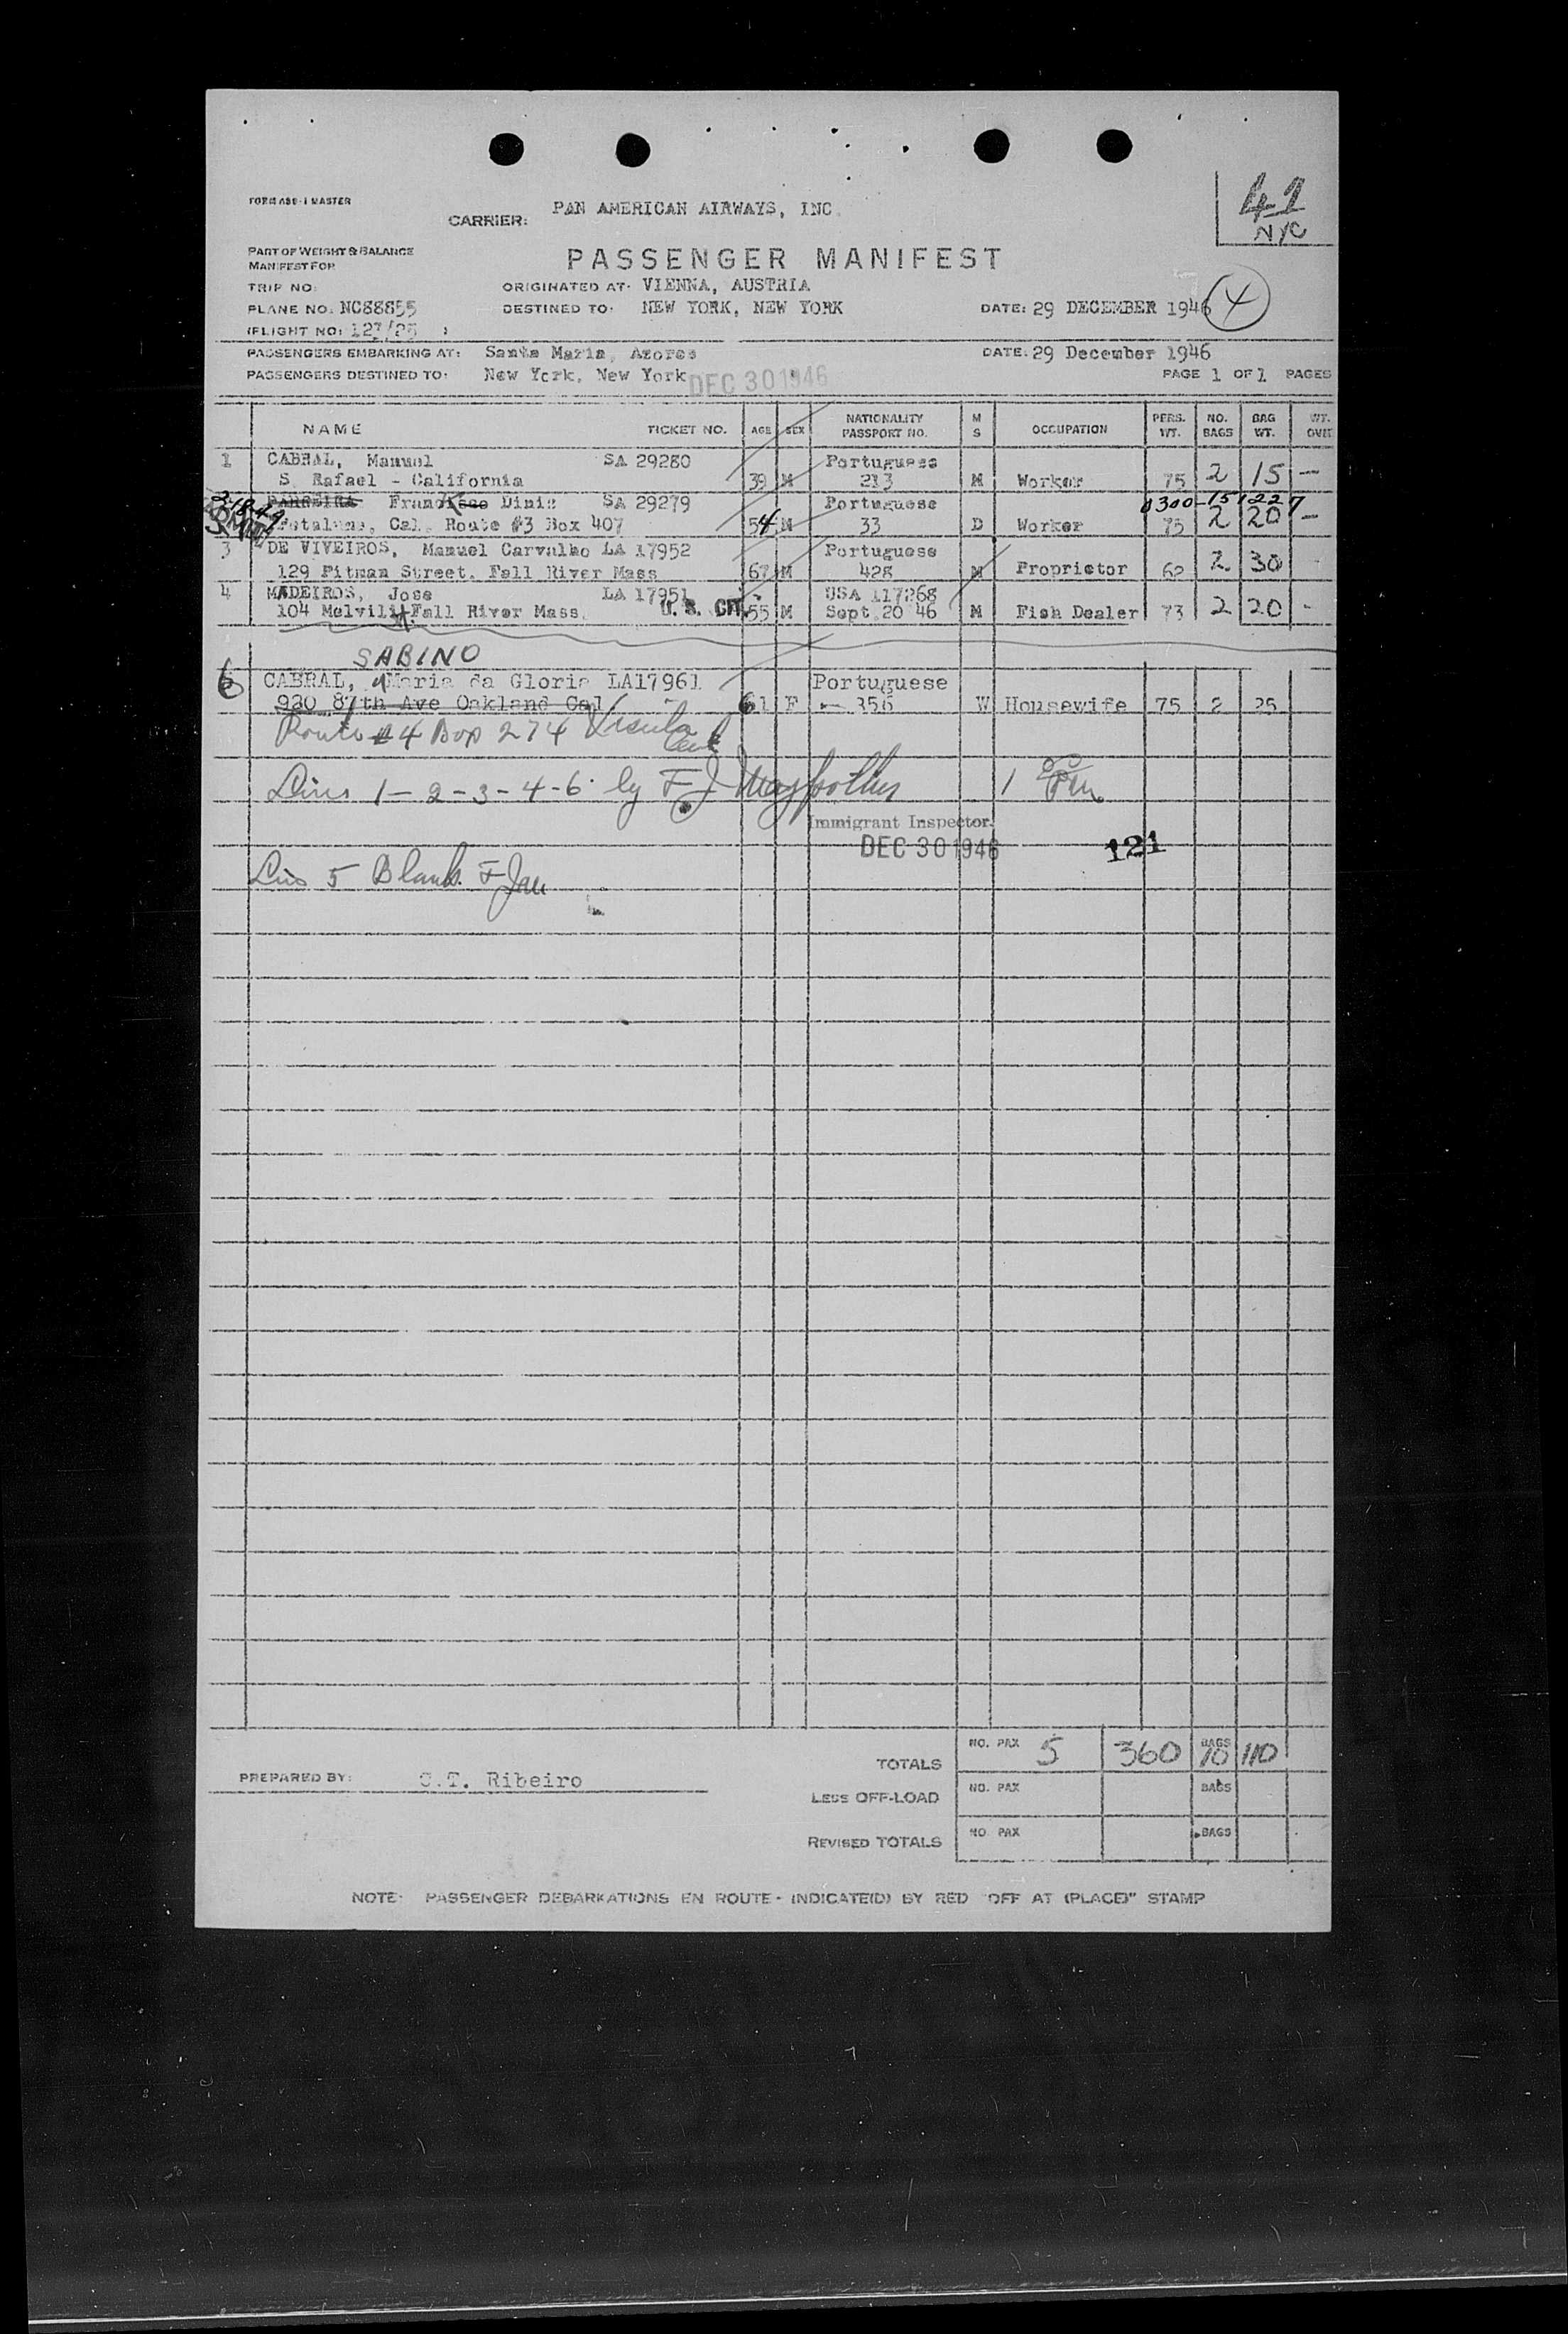 FORM ASB-1 MASTER
CARRIER: PAN AMERICAN AIRWAYS, INC.
41
NYC
PART OF WEIGHT & BALANCE
MANIFEST FOR
PASSENGER MANIFEST
TRIP NO:
ORIGINATED AT: VIENNA, AUSTRIA
PLANE NO: NC88855
DESTINED TO: NEW YORK, NEW YORK
DATE: 29 DECEMBER 1946
4
(FLIGHT NO:
PASSENGERS EMBARKING AT: Santa Maria, Azores
DATE: 29 December 1946
PASSENGERS DESTINED TO: New York, New York
DEC 30 1946
PAGE 1 OF 1 PAGES
NAME TICKET NO. AGE SEX NATIONALITY PASSPORT NO. M S OCCUPATION PERS. WT. NO. BAGS BAG WT. WT. OVER
1 CABRAL, Manuel SA 29280 Portuguese
S. Rafael - California 39 M 213 M Worker 75 2 15 —
PARREIRA Francisco Diniz SA 29279 Portuguese 0300-151227
Petaluma, Cal. Route #3 Box 407 54 M 33 D Worker 75 2 20 —
3 DE VIVEIROS, Manuel Carvalho LA 17952 Portuguese
129 Pitman Street, Fall River Mass 67 M 428 M Proprietor 62 2 30 -
4 MADEIROS, Jose LA 17951 USA 117268
104 Melvill St Fall River Mass. U. S. CIT. 55 M Sept 20 46 M Fish Dealer 73 2 20 -
SABINO
6 CABRAL, Maria da Gloria LA17961 Portuguese
920 87th Ave Oakland Cal 61 F 356 W Housewife 75 2 25
Route #4 Box 274
Lines 1-2-3-4-6 by F J
Immigrant Inspector.
DEC 30 1946
121
Line 5 Blank.
TOTALS NO. PAX 5 360 BAGS 10 110
PREPARED BY: C.T. Ribeiro
LESS OFF-LOAD NO. PAX BAGS
REVISED TOTALS NO. PAX BAGS
NOTE: PASSENGER DEBARKATIONS EN ROUTE - INDICATE(D) BY RED "OFF AT (PLACE)" STAMP